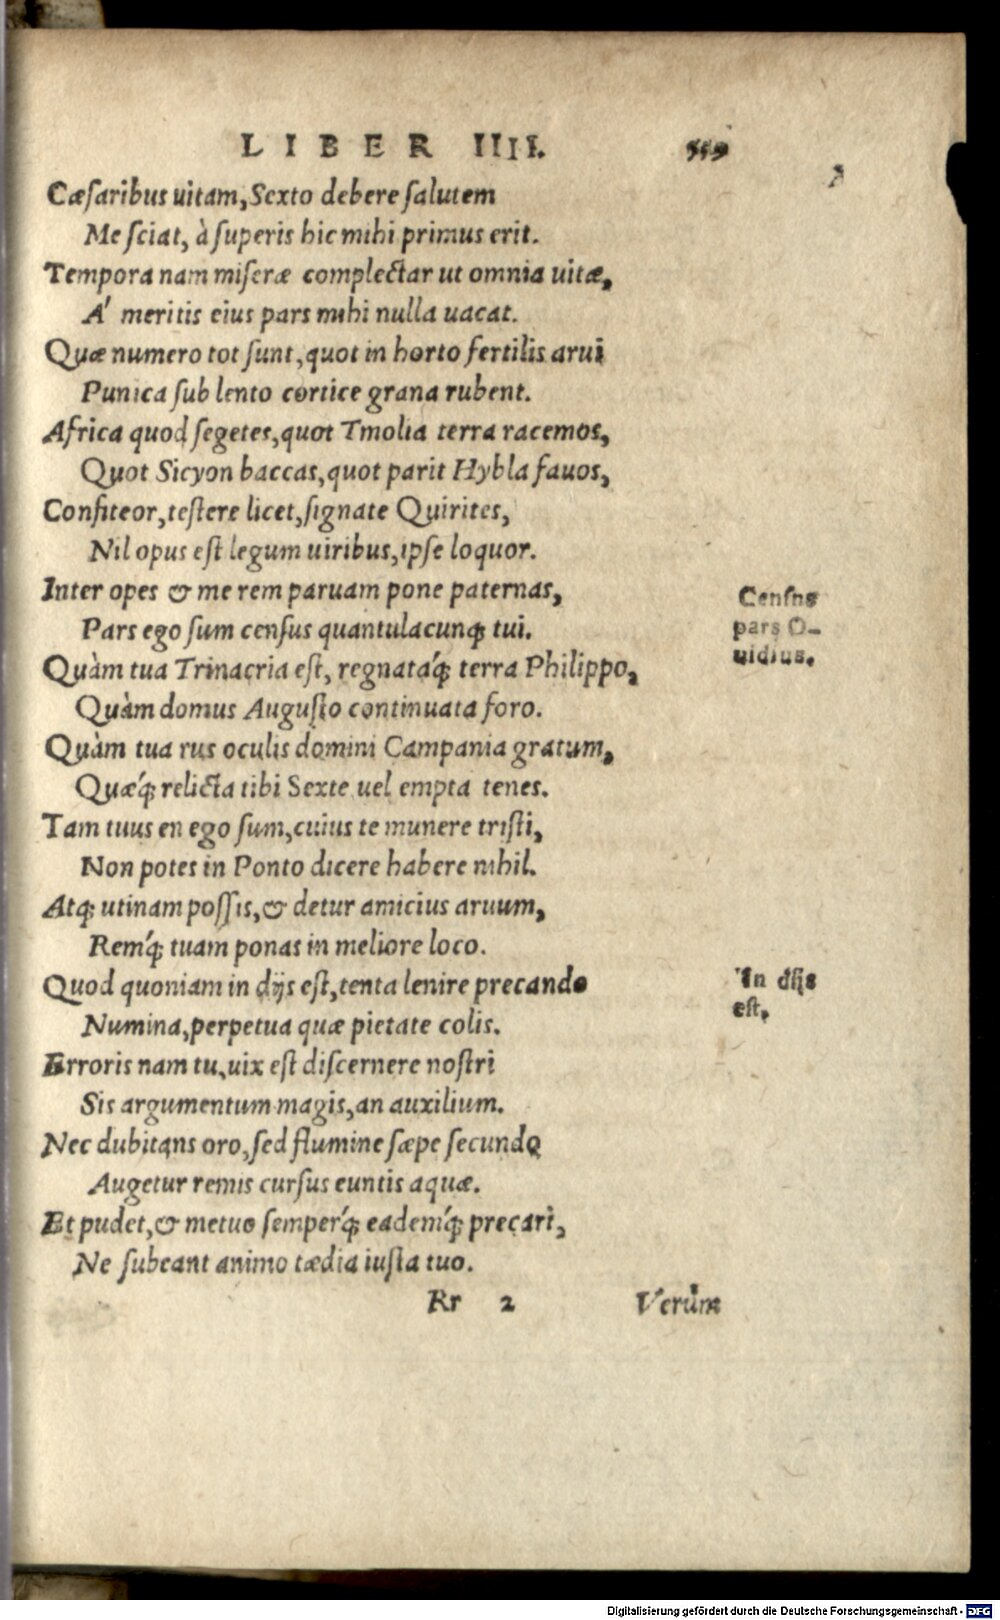 LIBER IIII. 559
Cæſaribus uitam, Sexto debere ſalutem
Me ſciat, à ſuperis hic mihi primus erit.
Tempora nam miſeræ complectar ut omnia uitæ,
A' meritis eius pars mihi nulla uacat.
Quæ numero tot ſunt, quot in horto fertilis arui
Punica ſub lento cortice grana rubent.
Africa quod ſegetes, quot Tmolia terra racemos,
Quot Sicyon baccas, quot parit Hybla fauos,
Confiteor, teſtere licet, ſignate Quirites,
Nil opus eſt legum uiribus, ipſe loquor.
Inter opes & me rem paruam pone paternas,
Pars ego ſum cenſus quantulacunq; tui.
Quàm tua Trinacria eſt, regnatáq; terra Philippo,
Quàm domus Auguſto continuata foro.
Quàm tua rus oculis domini Campania gratum,
Quæq́; relicta tibi Sexte uel empta tenes.
Tam tuus en ego ſum, cuius te munere triſti,
Non potes in Ponto dicere habere nihil.
Atq; utinam poſſis, & detur amicius aruum,
Remq́; tuam ponas in meliore loco.
Quod quoniam in dijs eſt, tenta lenire precando
Numina, perpetua quæ pietate colis.
Erroris nam tu, uix eſt diſcernere noſtri
Sis argumentum magis, an auxilium.
Nec dubitans oro, ſed flumine ſæpe ſecundo
Augetur remis curſus euntis aquæ.
Et pudet, & metuo ſemperq́; eademq́; precari,
Ne ſubeant animo tædia iuſta tuo.
Rr 2 Verùm
Cenſus
pars O-
uidius.
In dijs
eſt.
Digitalisierung gefördert durch die Deutsche Forschungsgemeinschaft - DFG